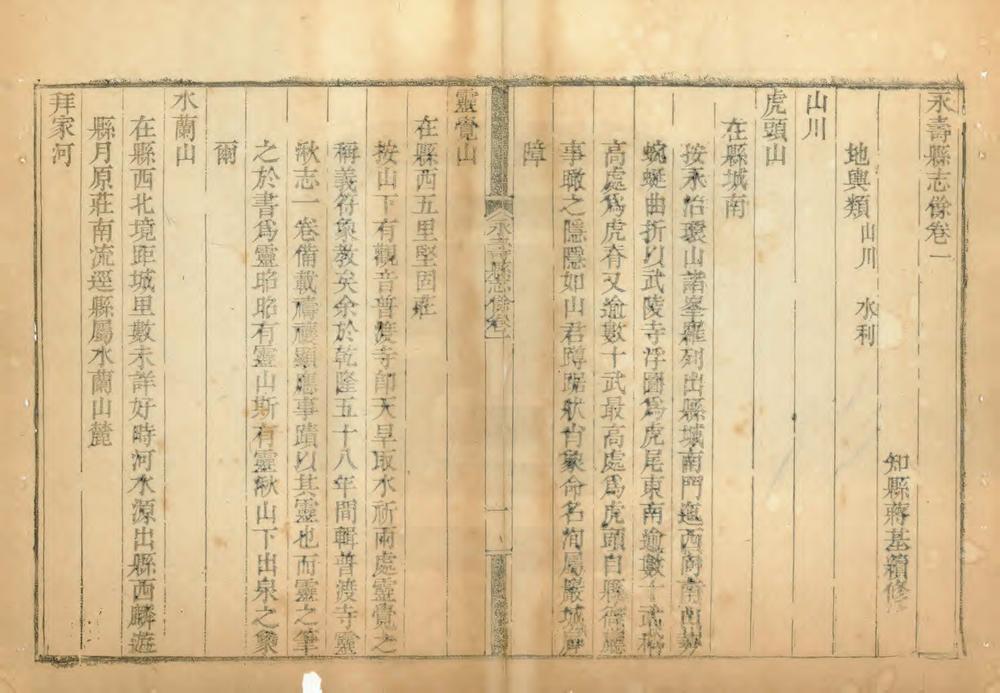 永壽縣志餘卷一
知縣蔣基續修
地輿類 山川 水利
山川
虎頭山
在縣城南
按永治環山諸峯羅列出縣城南門迤西向南曲
蜿蜒曲折以武陵寺浮圖爲虎尾東南逾數十武稍
高處爲虎脊又逾數十武最高處爲虎頭自縣
事瞰之隱隱如山君蹲踞狀肖象命名洵屬巖城
障
永壽縣志餘卷一
一
靈覺山
在縣西五里堅固莊
按山下有觀音普渡寺卽天旱取水祈雨處靈覺之
稱義符象教矣余於乾隆五十八年間輯普渡寺靈
湫志一卷備載禱禳顯應事蹟以其靈也而靈之筆
之於書爲靈昭昭有靈山斯有靈湫山下出泉之象
爾
水蘭山
在縣西北境距城里數未詳好畤河水源出縣西麟遊
縣月原莊南流逕縣屬水蘭山麓
拜家河